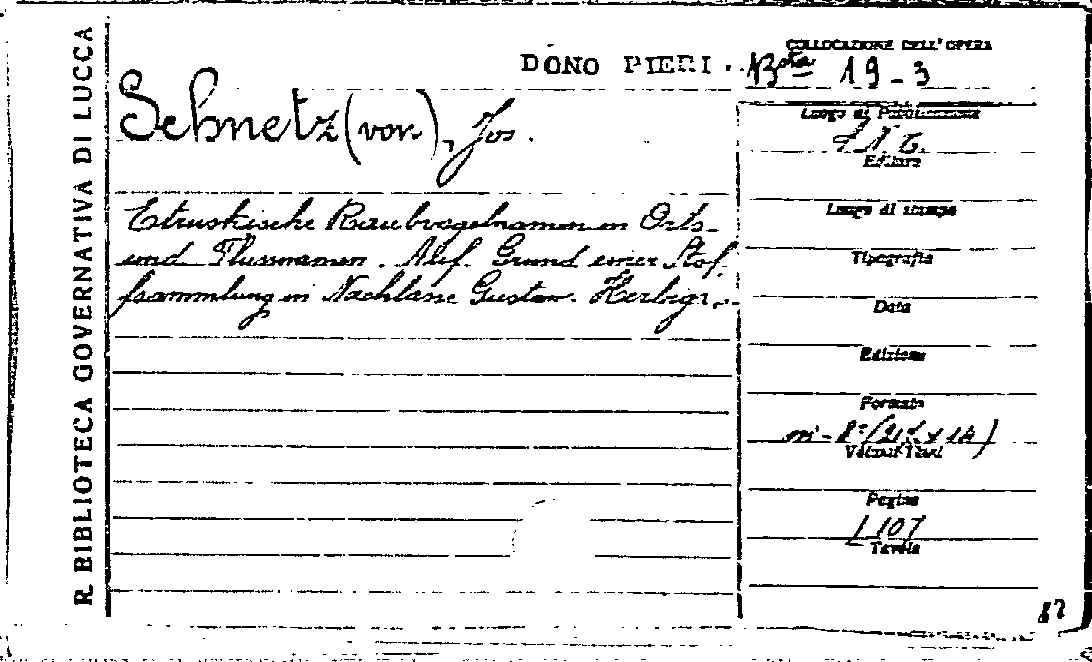 R. BIBLIOTECA GOVERNATIVA DI LUCCA
DONO PIERI.
COLLOCAZIONE DELL'OPERA
Bsta 19-3
Schnetz (von), Jos.
Etruskische Raubvogelnamen in Orts-
und Flussnamen. Auf. Grund einer Stof.
fsammlung in Nachlasse Gustav. Herbigr.
Luogo di Pubblicazione
Editore
Luogo di stampa
Tipografia
Data
Edizione
Formato
in-8°
Volumi Tomi
Pagine
107
Tavole